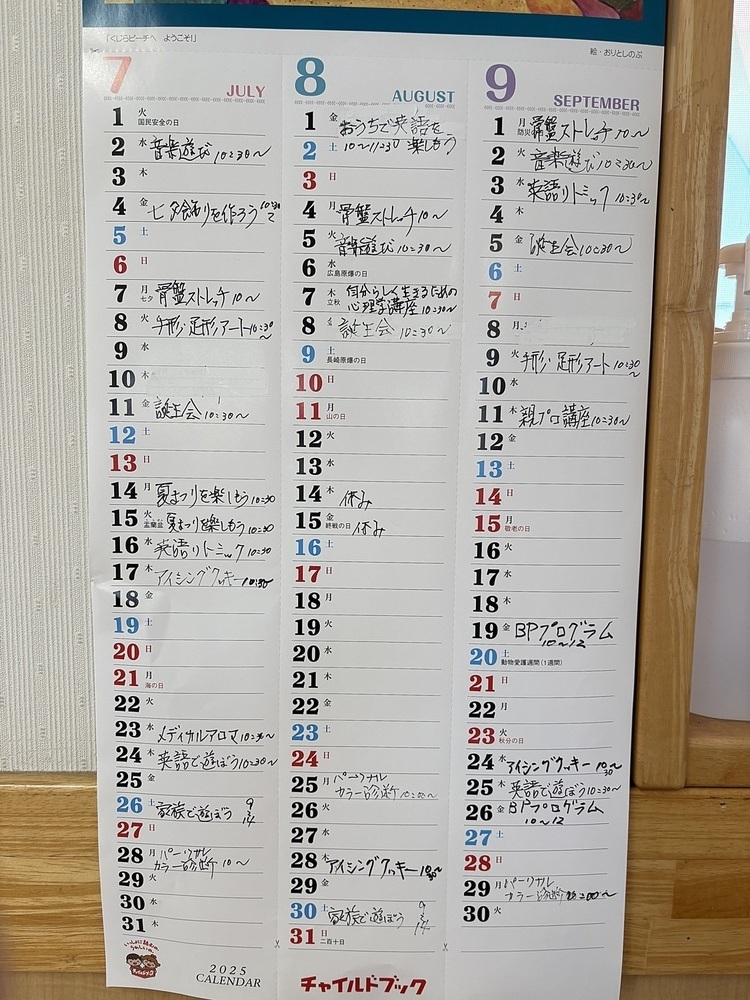 「くじらビーチへ　ようこそ!」
絵・おりとしのぶ
7 JULY
1 火 国民安全の日
2 水 音楽遊び 10:30〜
3 木
4 金 七夕飾りを作ろう 10:30〜
5 土
6 日
7 月 七夕 骨盤ストレッチ 10〜
8 火 手形・足形アート 10:30〜
9 水
10 木
11 金 誕生会 10:30〜
12 土
13 日
14 月 夏まつりを楽しもう 10:30
15 火 盂蘭盆 夏まつりを楽しもう 10:30
16 水 英語リトミック 10:30
17 木 アイシングクッキー 10:30
18 金
19 土
20 日
21 月 海の日
22 火
23 水 メディカルアロマ 10:30〜
24 木 英語で遊ぼう 10:30〜
25 金
26 土 家族で遊ぼう 9〜14
27 日
28 月 パーソナル
カラー診断 10〜
29 火
30 水
31 木
2025
CALENDAR
8 AUGUST
1 金 おうちで英語を
2 土 10〜11:30 楽しもう
3 日
4 月 骨盤ストレッチ 10〜
5 火 音楽遊び 10:30〜
6 水 広島原爆の日
7 木 立秋 自分らしく生きるための
心理学講座 10:30〜
8 金 誕生会 10:30〜
9 土 長崎原爆の日
10 日
11 月 山の日
12 火
13 水
14 木 休み
15 金 終戦の日 休み
16 土
17 日
18 月
19 火
20 水
21 木
22 金
23 土
24 日
25 月 パーソナル
カラー診断 10:00〜
26 火
27 水
28 木 アイシングクッキー 10:30
29 金
30 土 家族で遊ぼう 9〜14
31 日 二百十日
チャイルドブック
9 SEPTEMBER
1 月 防災 骨盤ストレッチ 10〜
2 火 音楽遊び 10:30〜
3 水 英語リトミック 10:30〜
4 木
5 金 誕生会 10:30〜
6 土
7 日
8 月
9 火 手形・足形アート 10:30〜
10 水
11 木 親プロ講座 10:30〜
12 金
13 土
14 日
15 月 敬老の日
16 火
17 水
18 木
19 金 BPプログラム
10〜12
20 土 動物愛護週間(1週間)
21 日
22 月
23 火 秋分の日
24 水 アイシングクッキー 10:30〜
25 木 英語で遊ぼう 10:30〜
26 金 BPプログラム
10〜12
27 土
28 日
29 月 パーソナル
カラー診断 10:00〜
30 火